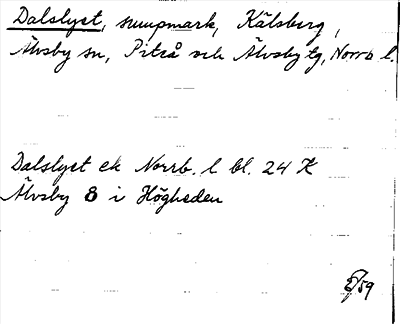 Dalslyet, sumpmark, Kälsberg,
Älvsby sn, Piteå och Älvsby tg, Norrb l.
Dalslyet ek Norrb. l bl. 24 K
Älvsby 8 i Högheden
/59